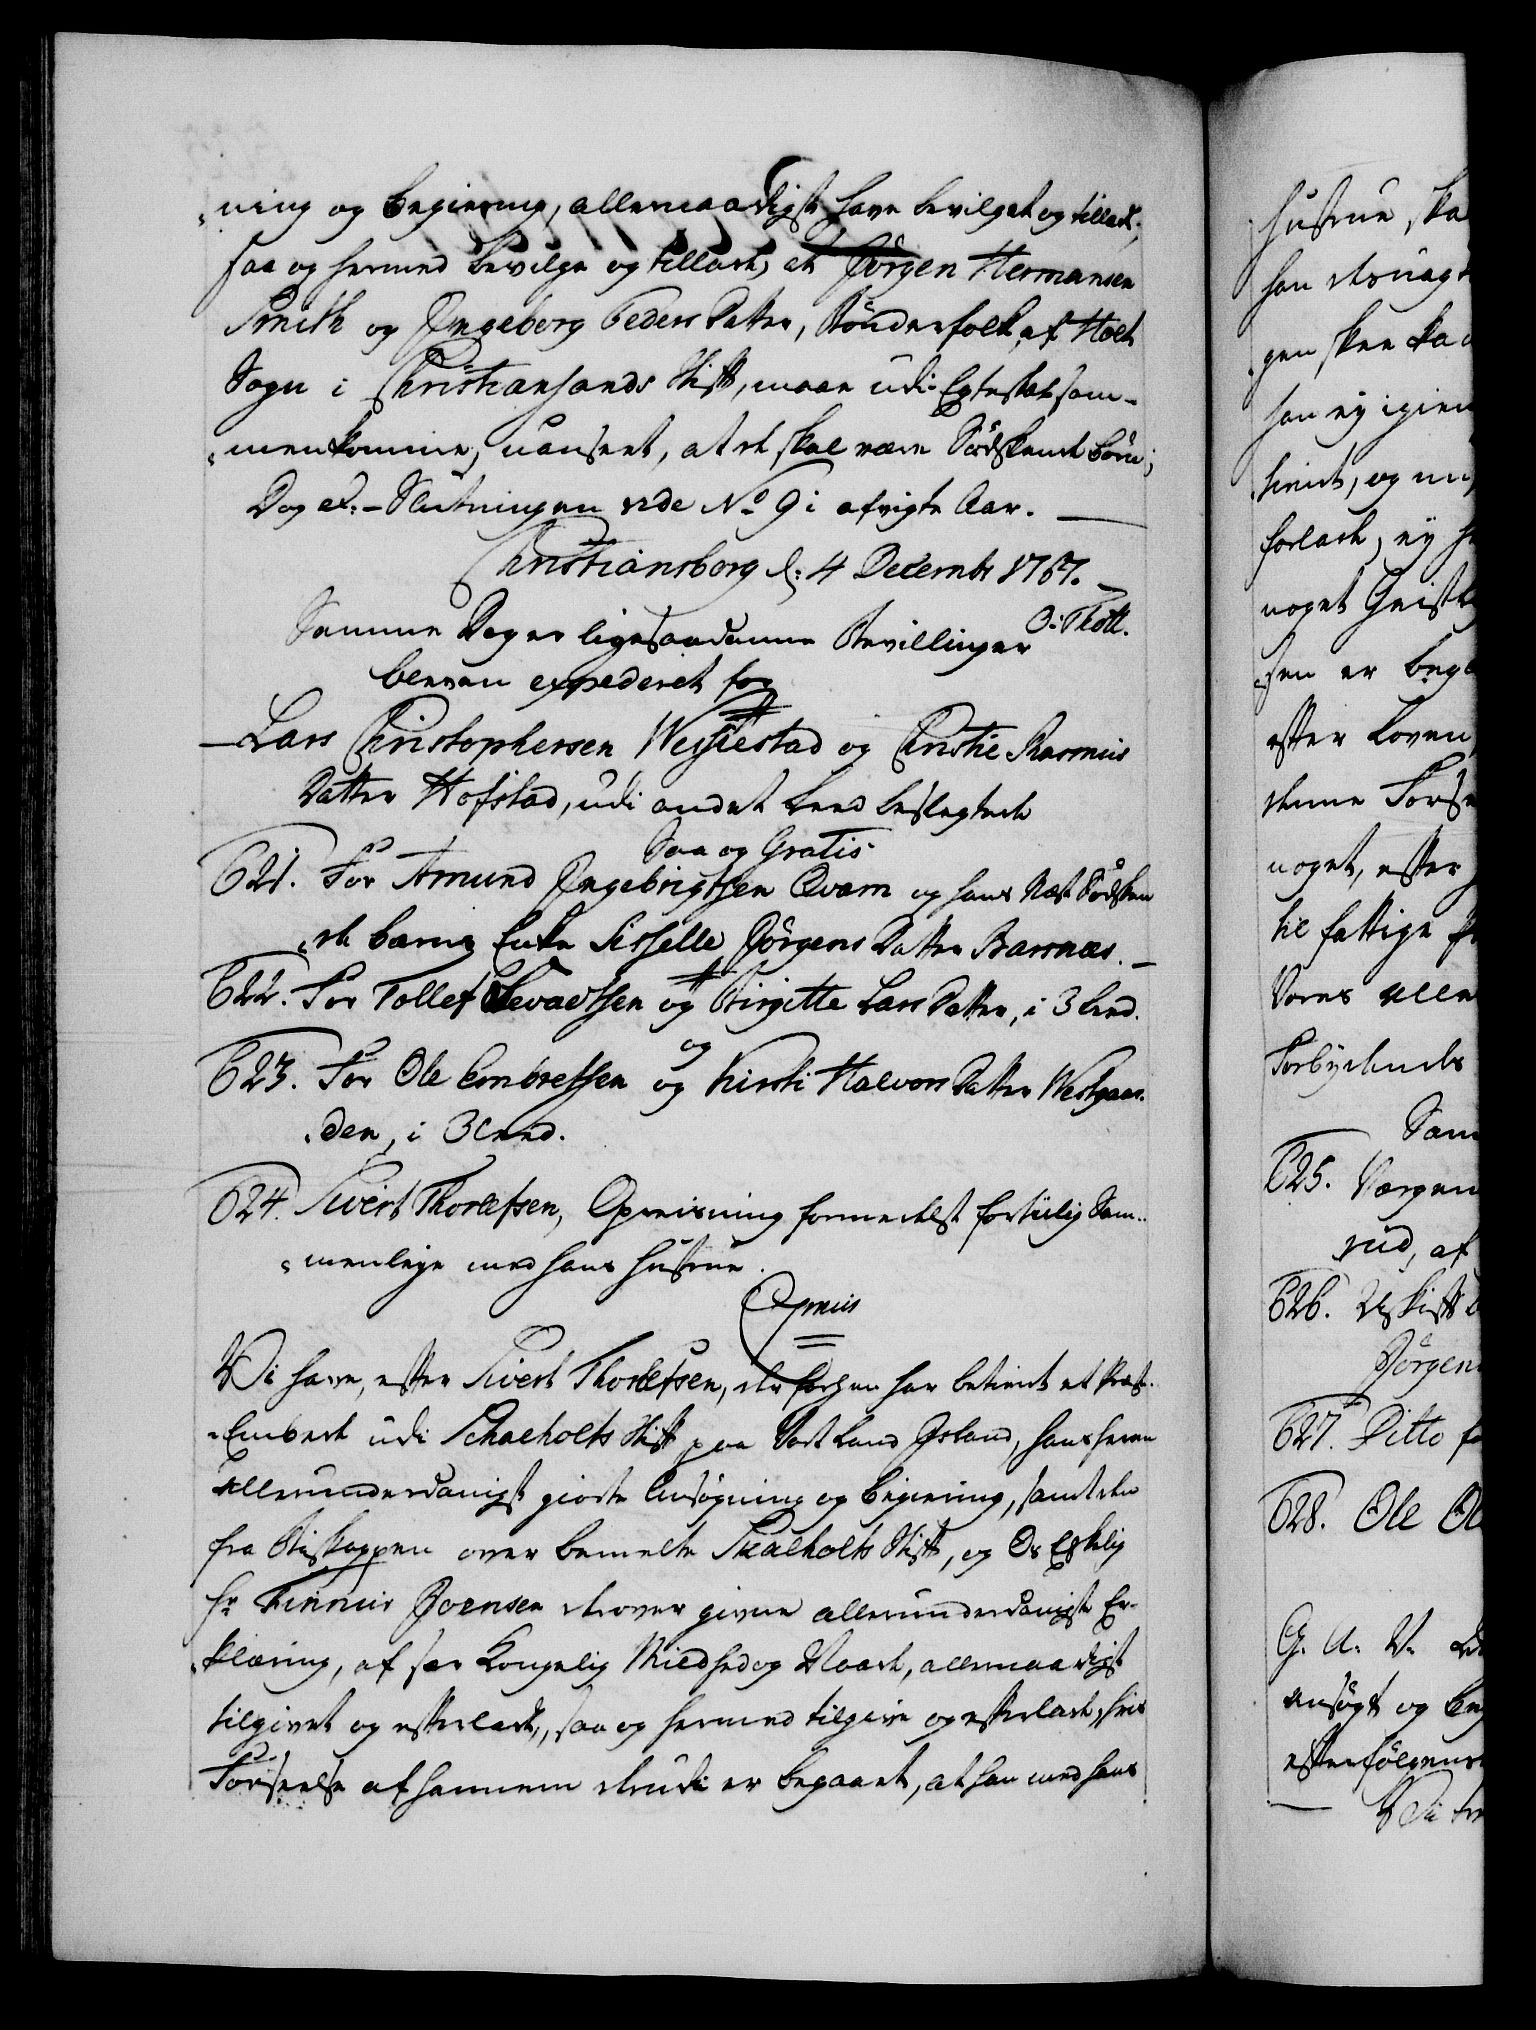 ning og begiering, allernaadigst have bevilget og tilladt,
saa og hermed bevilge og tillade, at Jörgen Hermansen
Smith og Ingeborg Peders Datter, Bönderfolk af Holt
Sogn i Christiansands Stift, maae udi Egteskab sam-
menkomme, uanseet, at de skal være Södskende börn;
Dog etc. - Slutningen vide No 9 i afvigte Aar.
Christiansborg d: 4 Decembr 1767.
O: Thott.
Samme Dag er ligesaadanne Bevillinger
bleven expederet for
Lars Christophersen Westestad og Christie Rasmus
Datter Hofstad, udi andet Leed beslegtede
Saa og Gratis
621. For Amund Ingebrigtsen Qvam og hans Næst Södsken
de barns Enke Sisselle Jörgens Datter Barsnæs.
622. For Tollef Sevaldsen og Birgitte Lars Datter, i 3 Leed.
og
623. For Ole Embretsen og Kirsti Halvors Datter Westgaar-
den, i 3 Leed.
624. Sivert Thorlefsen, Opreisning formedelst fortiilig Sam-
menleje med hans Hustrue.
Opreis
Vi have, efter Sivert Thorlefsen, der forhen har betient et Præste-
Embede udi Schalholts Stift paa Vort Land Island, hans herom
allerunderdanigst giorte Ansögning og begiering, samt den
fra Biskoppen over bemelte Skalholts Stift, og Os Elskelig
Hr Finnur Joensen derover givne allerunderdanigste Er-
klæring, af sær Kongelig Mildhed og Naade, allernaadigst
tilgivet og efterladt, saa og hermed tilgive og efterlade, hvis
Forseelse af hannem derudi er begaaet, at han med hans
Hustrue ska
han
gen skee ka
han ej igien
tient, og
forlade, ej
noget Geistl
sen er beg
efter Loven,
denne Forse
noget, efter
til fattige
Vores alle
Forbydendes
Sam
625. Jörgen
rud, af
626. Uskift
Jörgen
627. Ditto fo
628. Ole Ol
G. A. V.
ansögt og beg
efterfölgende